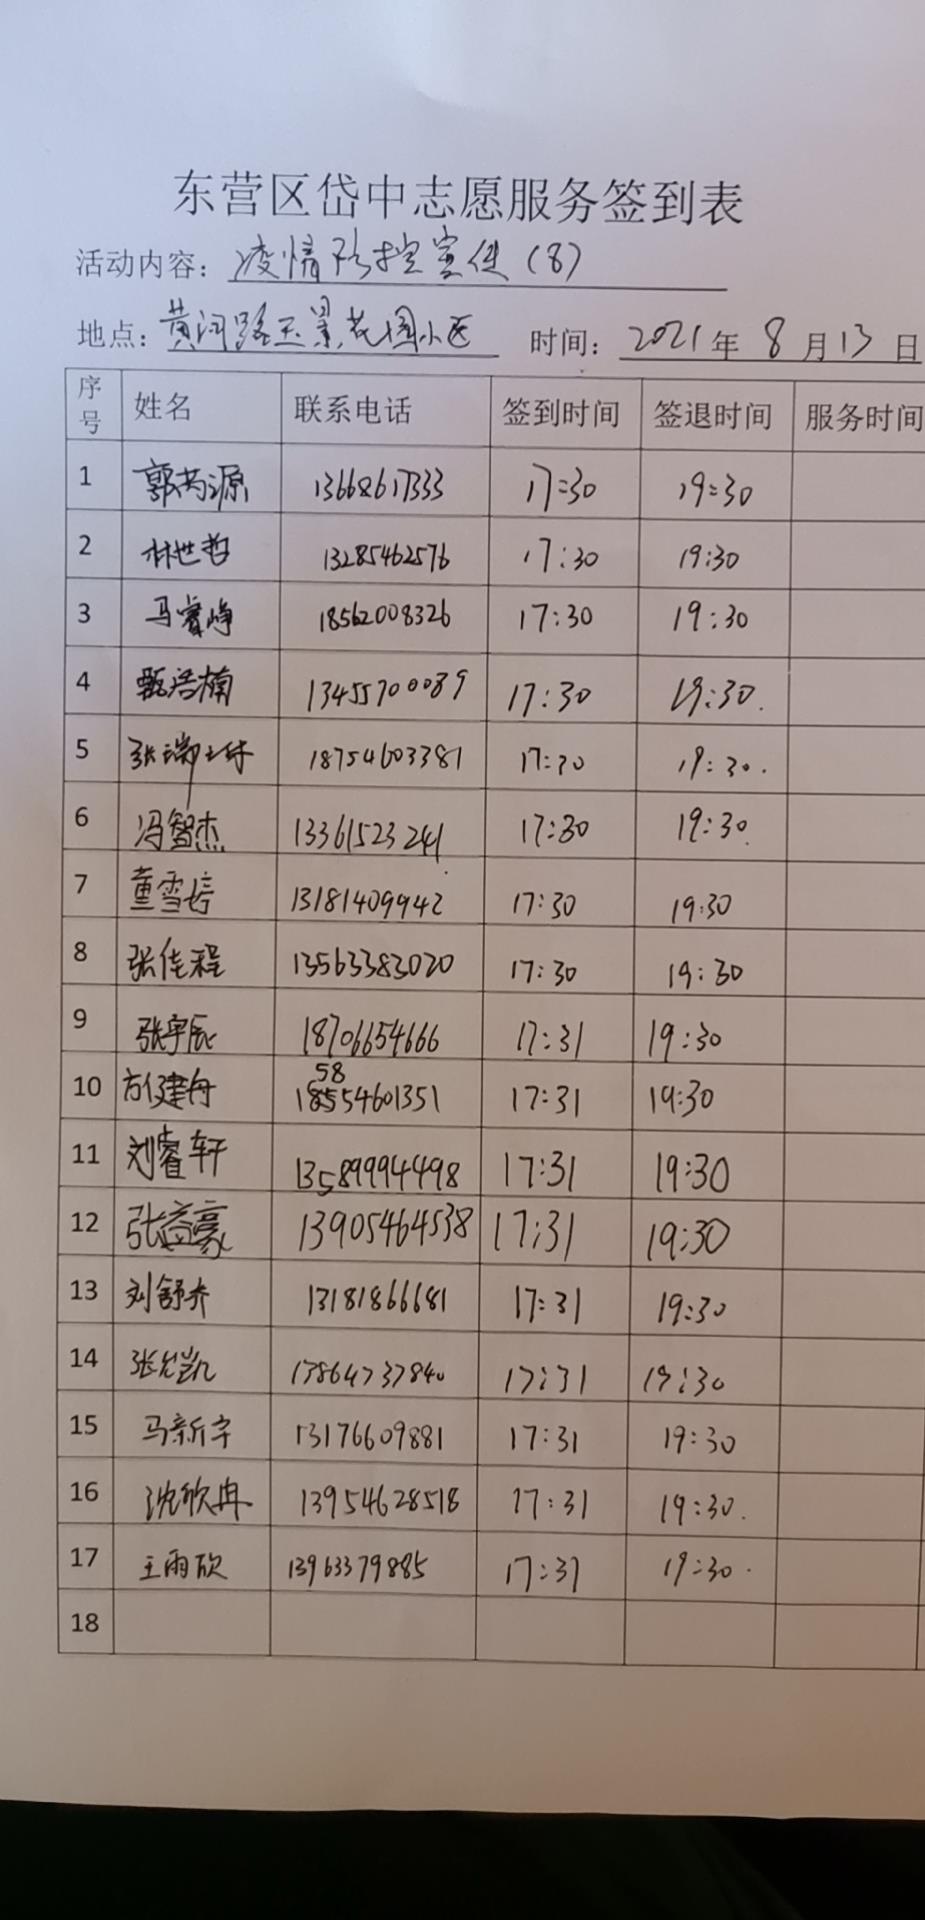 东营区岱中志愿服务签到表
活动内容：疫情防控宣传（8）
地点：黄河路玉景花园小区 时间：2021年8月13日
序号 姓名 联系电话 签到时间 签退时间 服务时间
1 郭芮源 13668617333 17:30 19:30
2 林世哲 13285462576 17:30 19:30
3 马睿峥 18562008326 17:30 19:30
4 甄浩楠 13455700089 17:30 19:30.
5 张瑞 18754603381 17:30 19:30.
6 冯智杰 13361523241 17:30 19:30.
7 董雪婷 13181409942 17:30 19:30
8 张佳程 13563383020 17:30 19:30
9 张宇辰 18706654666 17:31 19:30
10 方健舟 17:31 19:30
11 刘睿轩 13589994498 17:31 19:30
12 张益豪 13905464538 17:31 19:30
13 刘舒乔 13181866681 17:31 19:30
14 张凯 17:31 19:30
15 马新宇 13176609881 17:31 19:30
16 沈欣冉 13954628518 17:31 19:30.
17 王雨欣 13963379885 17:31 19:30.
18